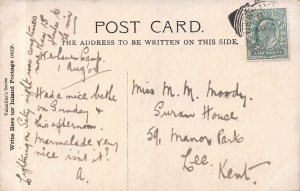 POST CARD.
THE ADDRESS TO BE WRITTEN ON THIS SIDE.
Valentine's Series
Write Here for Inland Postage only.
Camp.
1 Aug
Had a nice bathe
on Sunday &
this afternoon.
Marmalade very
nice isn't it?
A.
Lightning &
Miss M. M. Moody.
House
59, Manor Park
Lee.
Kent.